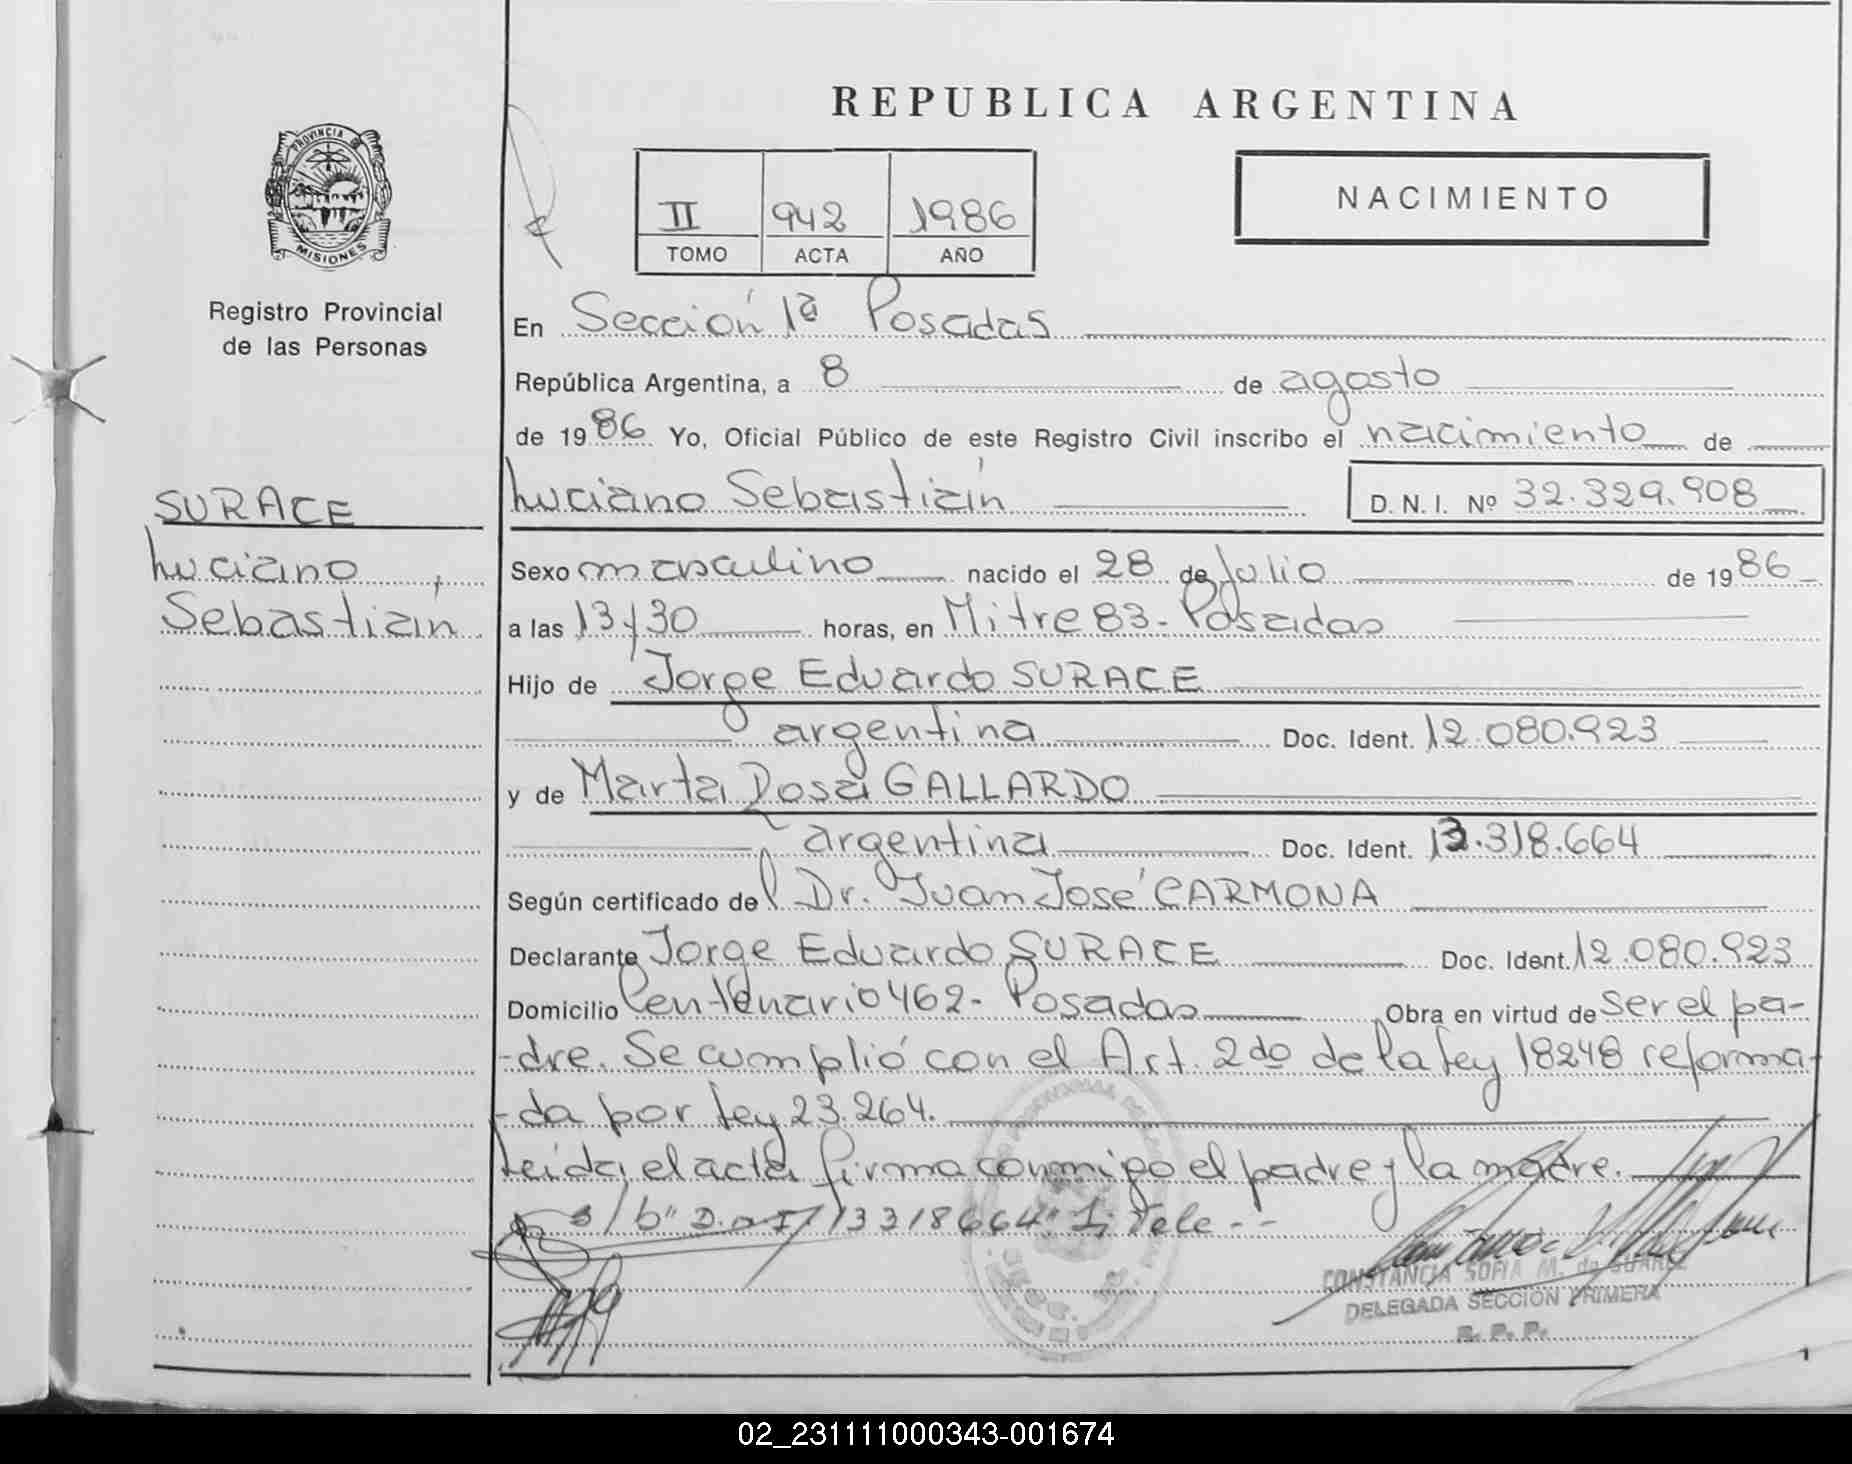 REPUBLICA ARGENTINA
PROVINCIA DE MISIONES
Registro Provincial
de las Personas
II 942 1986
TOMO ACTA AÑO
NACIMIENTO
En Sección 1ª Posadas
República Argentina, a 8 de agosto
de 1986 Yo, Oficial Público de este Registro Civil inscribo el nacimiento de
Luciano Sebastián D. N. I. Nº 32.329.908
SURACE
Luciano,
Sebastián
Sexo masculino nacido el 28 de Julio de 1986
a las 13/30 horas, en Mitre 83 - Posadas
Hijo de Jorge Eduardo SURACE
argentina Doc. Ident. 12.080.923
y de Marta Rosa GALLARDO
argentina Doc. Ident. 13.318.664
Según certificado del Dr. Juan José CARMONA
Declarante Jorge Eduardo SURACE Doc. Ident. 12.080.923
Domicilio Centenario 462 - Posadas Obra en virtud de ser el pa-
-dre. Se cumplió con el Art. 2do de la Ley 18248 reforma-
-da por Ley 23.264.
Leida el acta firma conmigo el padre y la madre.
s/b" 13318664"
CONSTANCIA SOFIA M. de SUAREZ
DELEGADA SECCION PRIMERA
R. P. P.
02_231111000343-001674